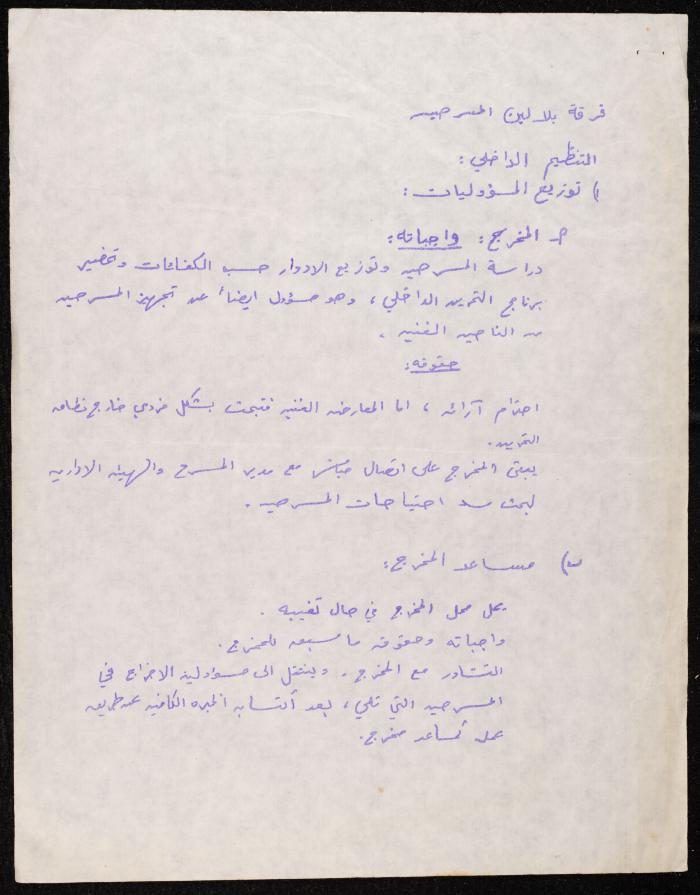 فرقة بلالين المسرحيه
التنظيم الداخلي :
١) توزيع المسؤوليات :
أ- المخرج : واجباته :
دراسة المسرحيه وتوزيع الادوار حسب الكفاءات وتحضير
برنامج التمرين الداخلي ، وهو مسؤول ايضاً عن تجهيز المسرحيه
من الناحيه الفنيه .
حقوقه :
احترام آرائه ، اما المعارضه الفنيه فتبحث بشكل فردي خارج نطاق
التمرين .
يبقى المخرج على اتصال مباشر مع مدير المسرح والهيئه الاداريه
لبحث سد احتياجات المسرحيه .
ب) مساعد المخرج :
يحل محل المخرج في حال تغيبه .
واجباته وحقوقه ما سبق للمخرج .
التشاور مع المخرج . وينتقل الى مسؤولية الاخراج في
المسرحيه التي تلي ، بعد أكتسابه الخبره الكافيه عن طريق
عمله كمساعد مخرج .